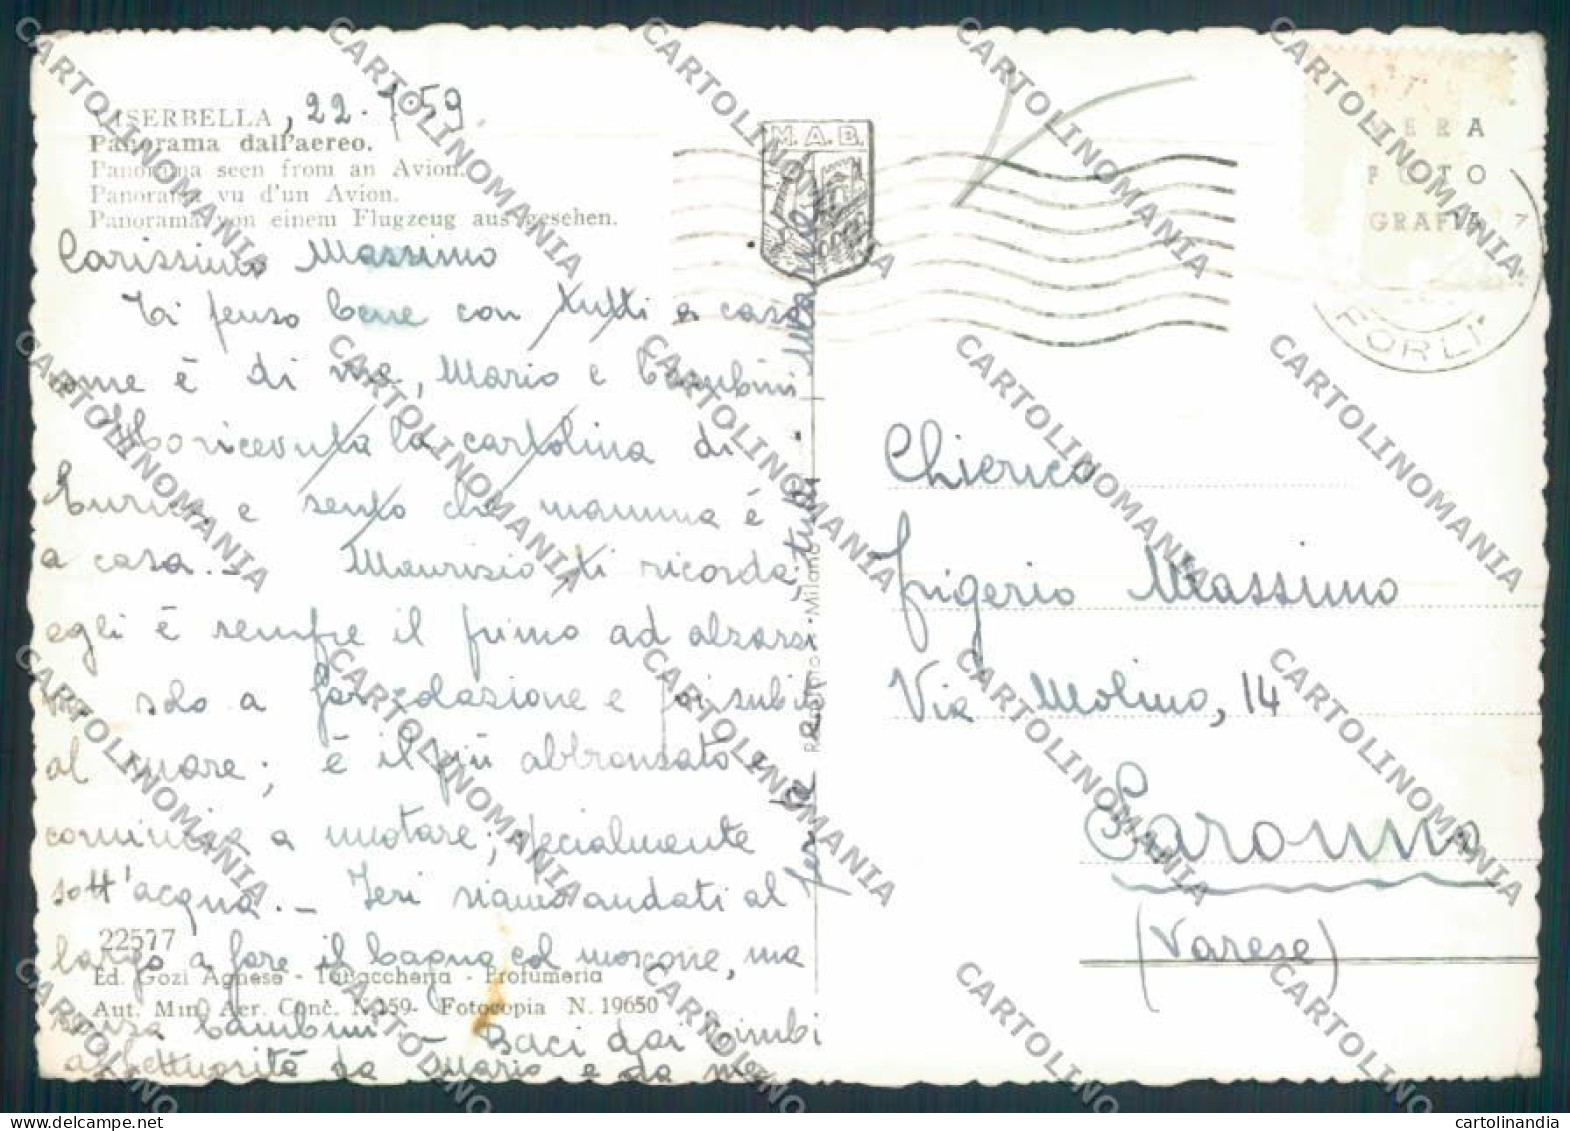 VISERBELLA, 22.7.59
Panorama dall'aereo.
Panorama seen from an Avion.
Panorama vu d'un Avion.
Panorama von einem Flugzeug aus gesehen.
Carissimo Massimo
Ti penso bene con tutti a casa
come è di me, Mario e bambini
Ho ricevuta la cartolina di
e sento che mamma è
a casa. - Maurizio ti ricorda,
egli è sempre il primo ad alzarsi
solo a far colazione e poi subito
al mare; è il più abbronzato e
comincia a nuotare, specialmente
sott'acqua. - Ieri siamo andati al
largo a fare il bagno col moscone, ma
senza bambini - Baci dai bimbi
affettuosità da Mario e da me
per te tutti
22577
Ed. Gozi Agnese - Tabaccheria - Profumeria
Aut. Min. Aer. Conc. N. 259 - Fotocopia N. 19650
Milano
M.A.B.
VERA
FOTO
GRAFIA
FORLI
Chierico
Frigerio Massimo
Via Molino, 14
Saronno
(Varese)
CARTOLINOMANIA
cartolinandia
delcampe.net